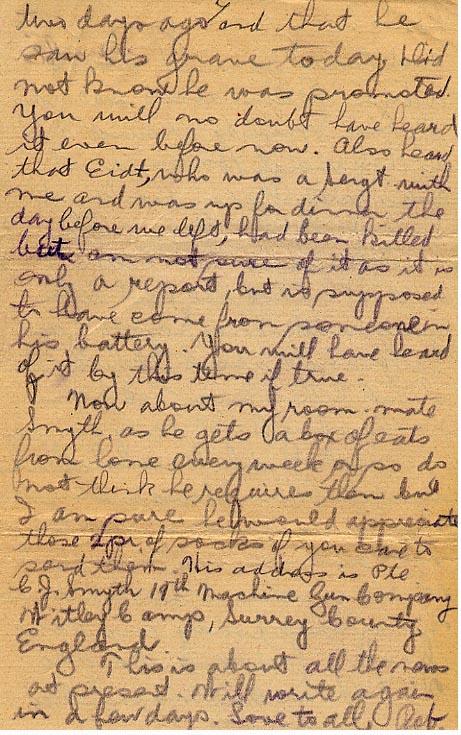 two days ago and that he
saw his grave today. Did
not know he was promoted.
You will no doubt have heard
it even before now. Also heard
that Eidt, who was a Sergt with
me and was up for dinner the
day before we left, had been killed
but am not sure of it as it is
only a report, but is supposed
to have come from someone in
his battery. You will have heard
of it by this time if true.
Now about my room-mate
Smyth, as he gets a box of eats
from home every week or so do
not think he requires them but
I am sure he would appreciate
those 2 pr of socks if you care to
send them. His address is Pte
C. J. Smyth Machine Gun Company
Witley Camp, Surrey County
England.
This is about all the news
at present. Will write again
in a few days. Love to all,